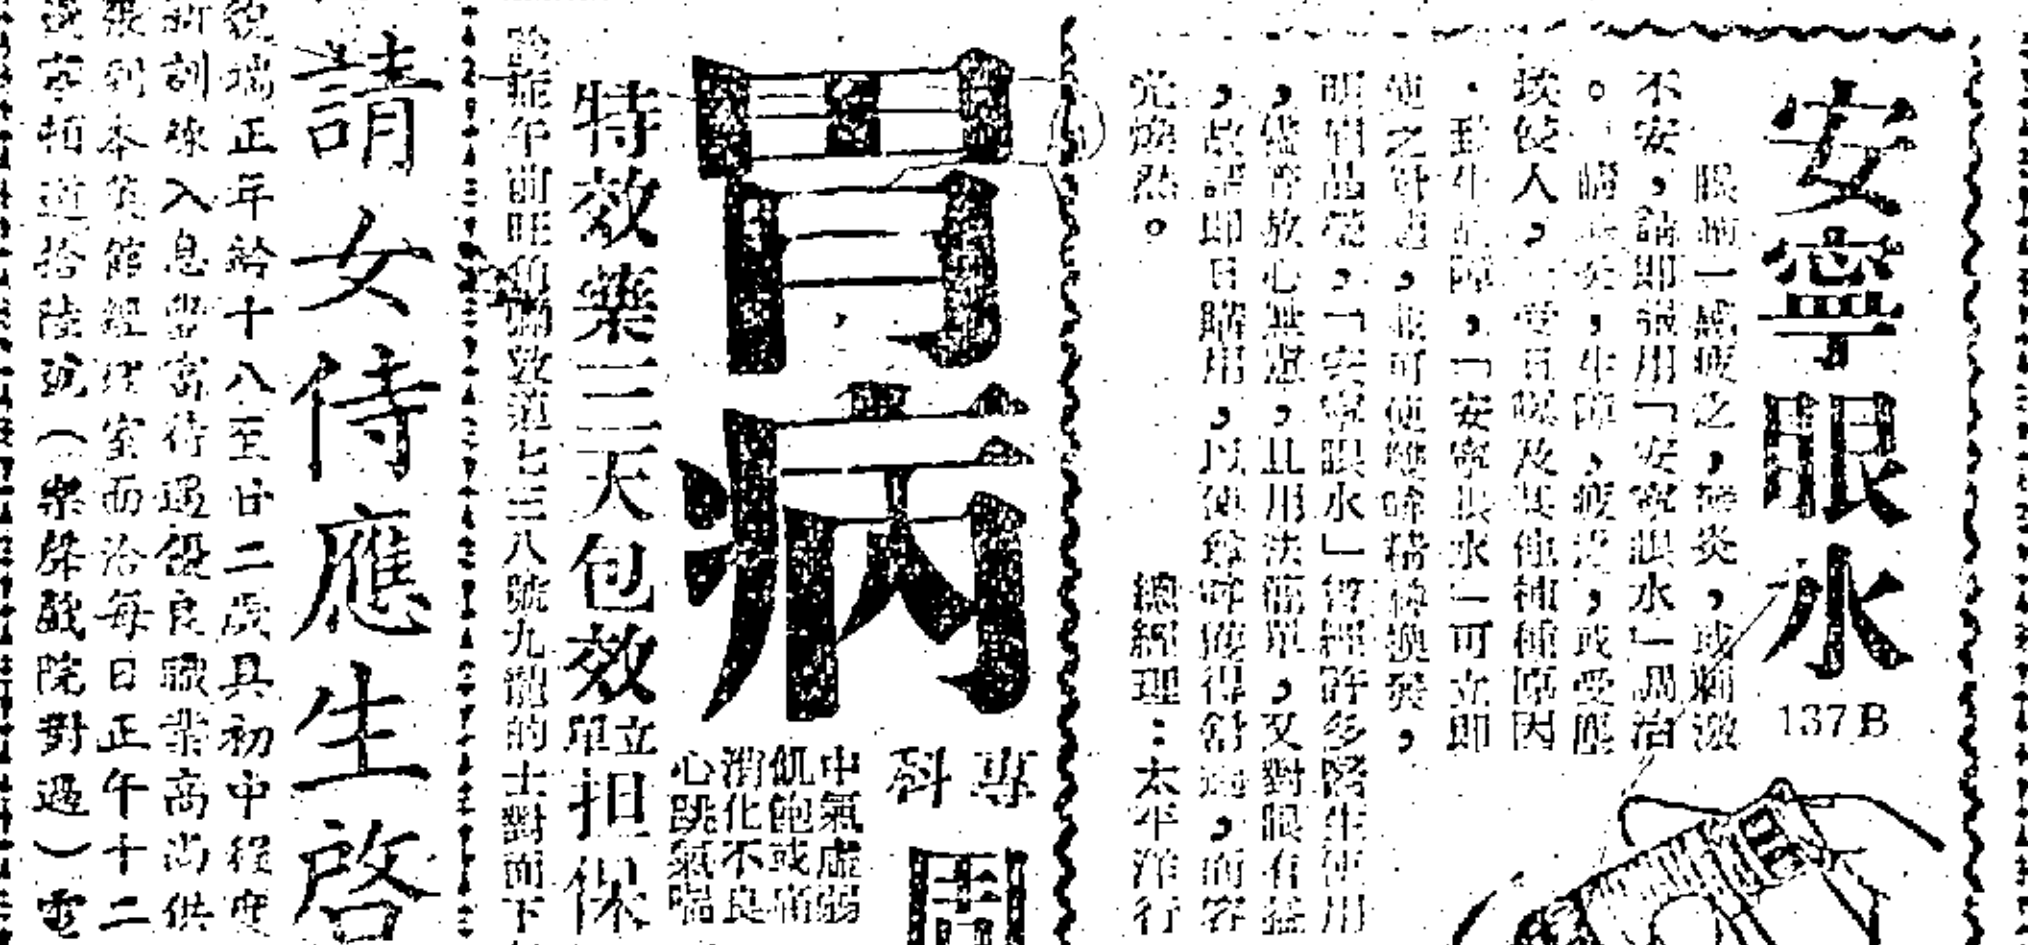 安寧眼水
137B
眼睛一感疲乏，發炎，或刺激
不安，請即用「安寧眼水」調治
。睛發炎，生障、疲乏，或受塵
埃侵人，受日曝及其他種種原因
，「安寧眼水」可立即
使之舒適，並可使雙眸精神煥發，
明眉晶瑩，「安寧眼水」曾經許多醫生使用
，儘管放心無慮，且用法簡單，又對眼有益
，故請即日購用，以使舒適，而容
光煥然。
總經理：太平洋行
胃病
專科
周
中氣虛弱
飢飽或痛
消化不良
心跳氣喘
特效藥三天包效立單担保
診症午前旺角彌敦道七三八號九龍的士對面下
請女侍應生啓
貌端正年齡十八至廿二歲具初中程度
新訓練入息豐富待遇優良職業高尚供
到本餐館經理室面洽每日正午十二
道拾陸號（樂聲戲院對過）電